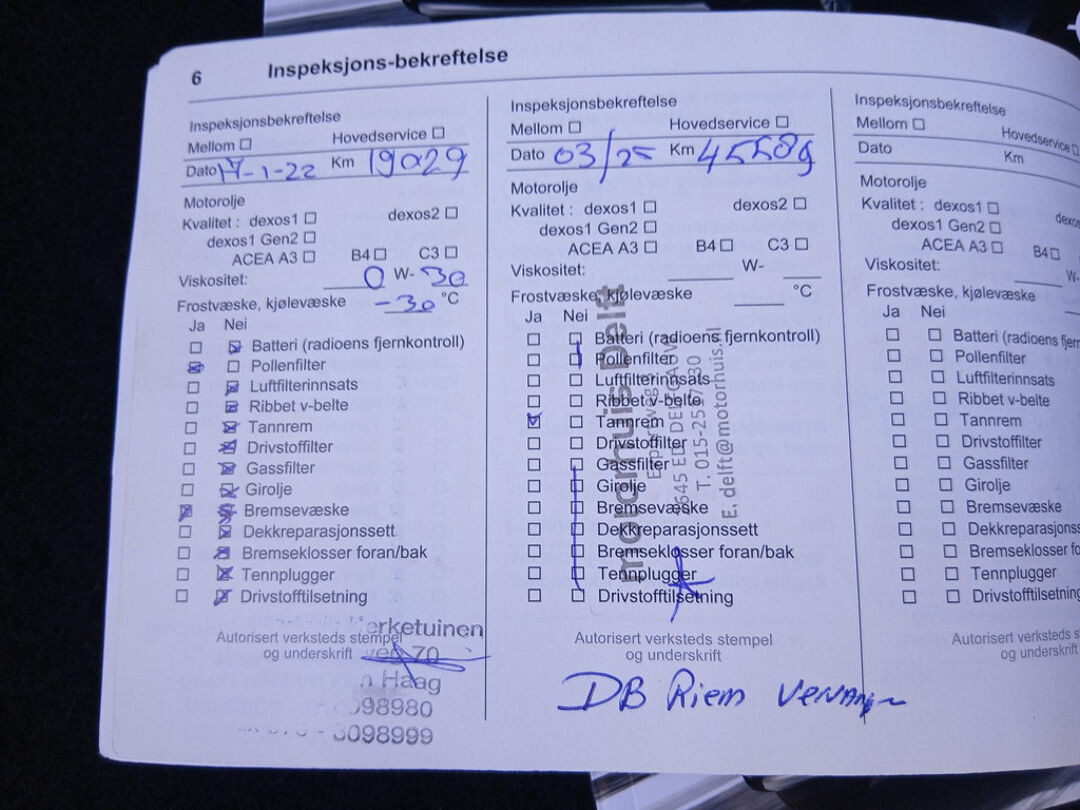 6 Inspeksjons-bekreftelse
Inspeksjonsbekreftelse
Mellom Hovedservice
Dato 17-1-22 Km 19029
Motorolje
Kvalitet : dexos1 dexos2
dexos1 Gen2
ACEA A3 B4 C3
Viskositet: 0 W- 30
Frostvæske, kjølevæske -30 °C
Ja Nei
Batteri (radioens fjernkontroll)
Pollenfilter
Luftfilterinnsats
Ribbet v-belte
Tannrem
Drivstoffilter
Gassfilter
Girolje
Bremsevæske
Dekkreparasjonssett
Bremseklosser foran/bak
Tennplugger
Drivstofftilsetning
Autorisert verksteds stempel
og underskrift
erketuinen
weg 70
n Haag
098980
3098999
Inspeksjonsbekreftelse
Mellom Hovedservice
Dato 03/25 Km
Motorolje
Kvalitet : dexos1 dexos2
dexos1 Gen2
ACEA A3 B4 C3
Viskositet: W-
Frostvæske, kjølevæske °C
Ja Nei
Batteri (radioens fjernkontroll)
Pollenfilter
Luftfilterinnsats
Ribbet v-belte
Tannrem
Drivstoffilter
Gassfilter
Girolje
Bremsevæske
Dekkreparasjonssett
Bremseklosser foran/bak
Tennplugger
Drivstofftilsetning
motorhuis Delft
E. delft@motorhuis.nl
Autorisert verksteds stempel
og underskrift
DB Riem
Inspeksjonsbekreftelse
Mellom Hovedservice
Dato Km
Motorolje
Kvalitet : dexos1 dexos
dexos1 Gen2
ACEA A3 B4
Viskositet: W-
Frostvæske, kjølevæske
Ja Nei
Batteri (radioens fjern
Pollenfilter
Luftfilterinnsats
Ribbet v-belte
Tannrem
Drivstoffilter
Gassfilter
Girolje
Bremsevæske
Dekkreparasjonss
Bremseklosser fo
Tennplugger
Drivstofftilsetning
Autorisert verksteds s
og unders